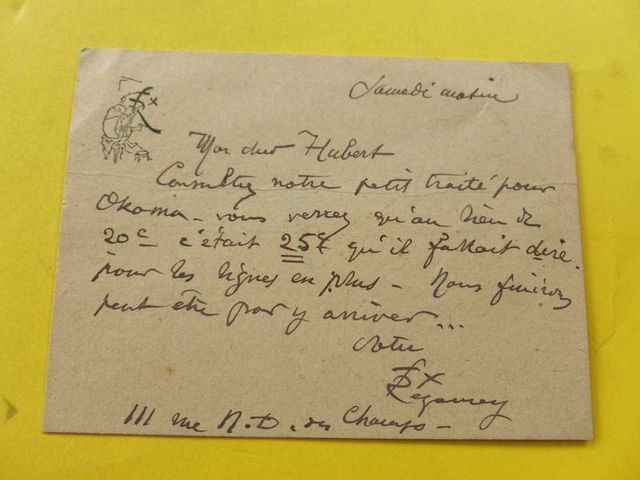 Samedi matin
Mon cher Hubert
Consultez notre petit traité pour
Okoma - vous verrez qu'au lieu de
20c c'était 25c qu'il fallait dire
pour les lignes en plus - Nous finirons
peut être par y arriver...
Votre
Regamey
111 rue N.D. des Champs -